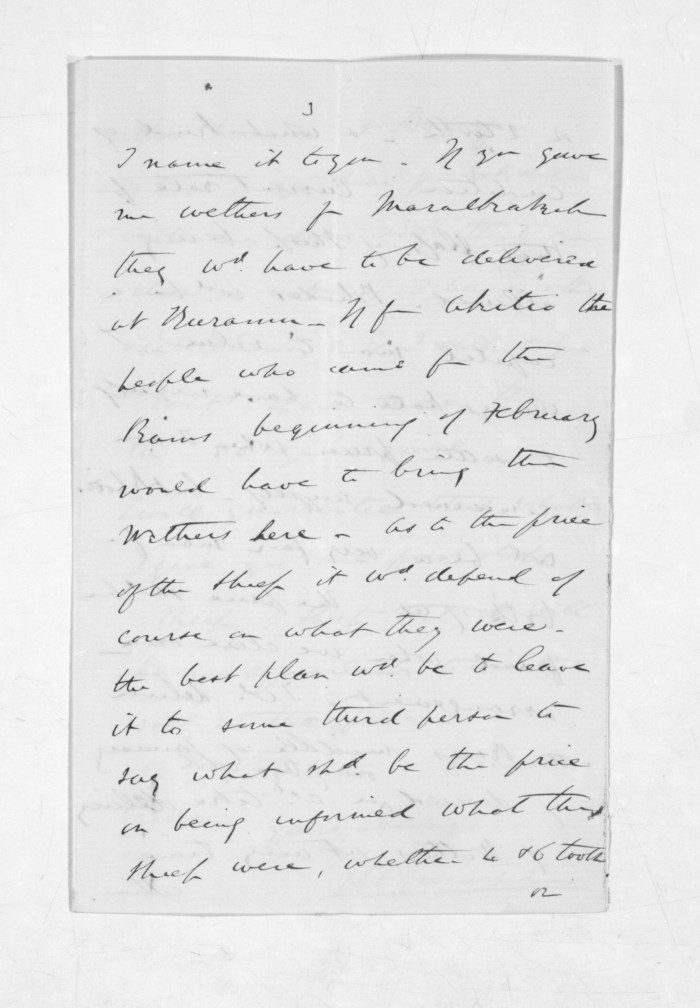 3
I name it to you - If you gave
me wethers fm Maraekakaho
they wd. have to be delivered
at Puramu - If fm Akitio the
people who came for the
Rams beginning of February
would have to bring the
Wethers here - As to the price
of the sheep it wd. depend of
course on what they were -
the best plan wd. be to leave
it to some third person to
say what shd. be the price
on being informed what the
sheep were, whether 4 & 6 tooth
or